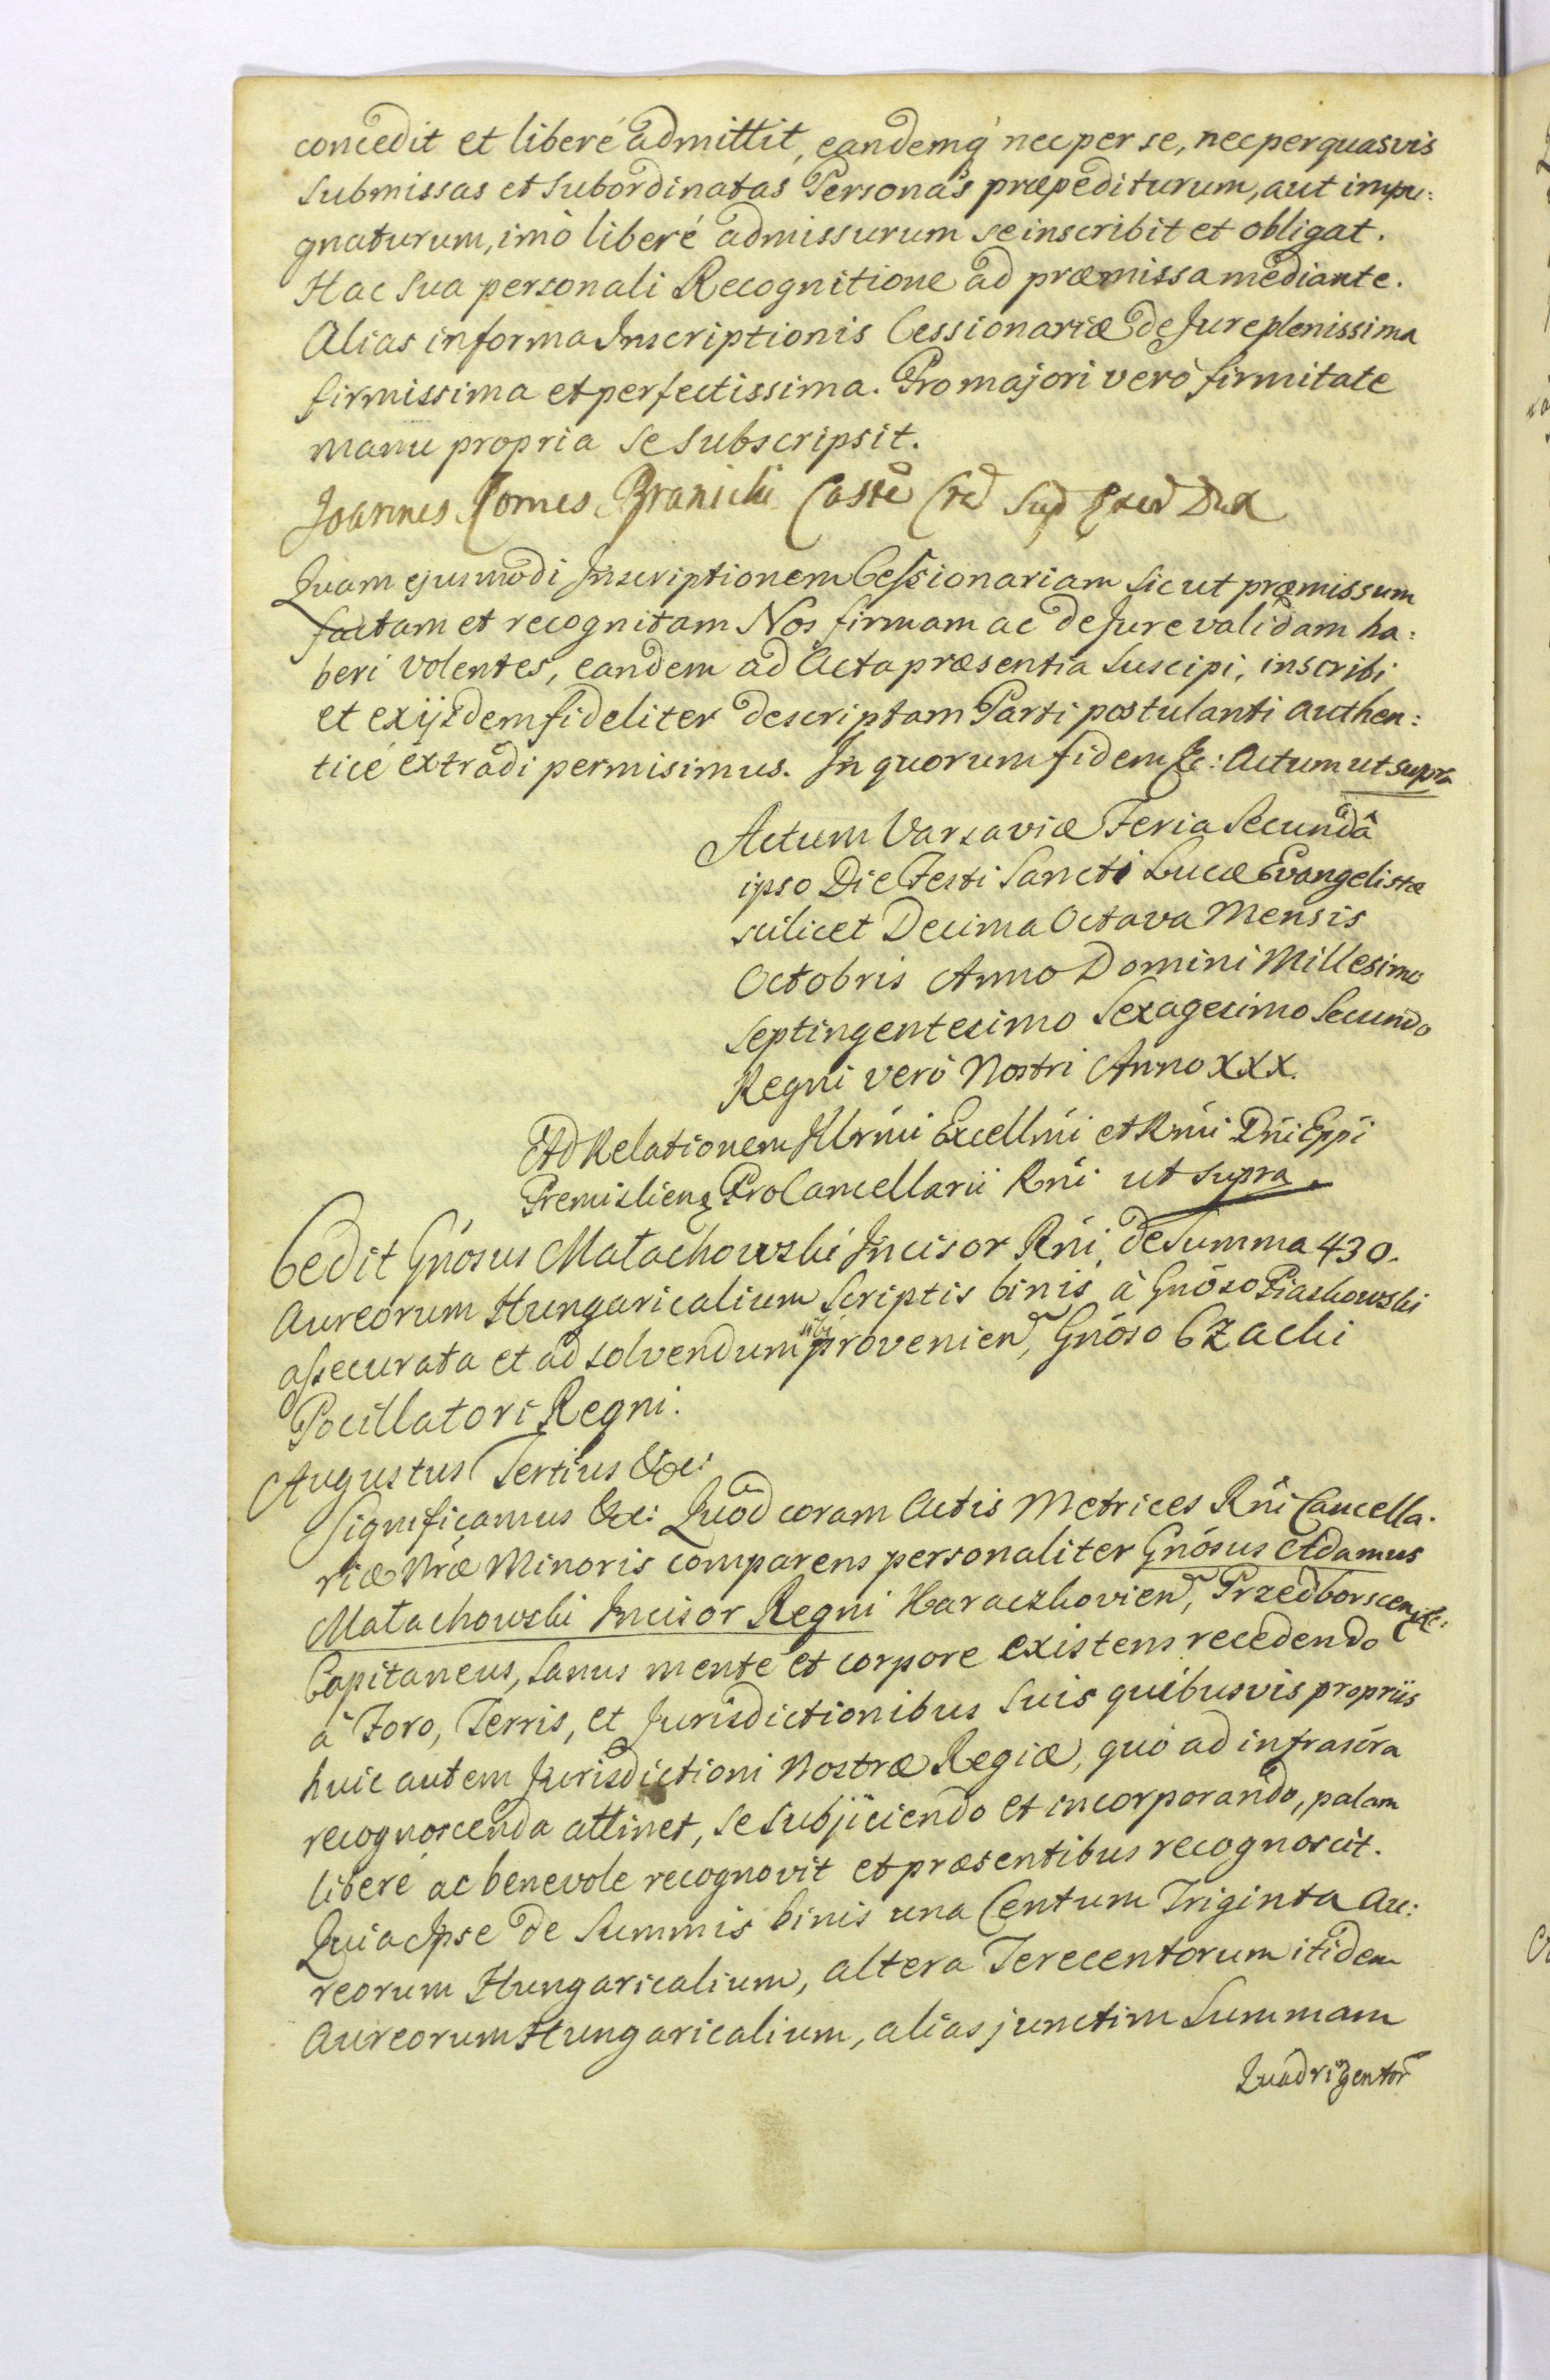 concedit et liberé admittit, eandemq́ nec per se, nec per quasvis
Submissas et Subordinatas Personas præpediturum, aut impu:
gnaturum, imò liberé admissurum se inscribit et obligat.
Hac Sua personali Recognitione ad præmissa mediante.
Alias in forma Inscriptionis Cessionariæ de Jure plenissima
firmissima et perfectissima. Pro majori verò firmitate
manu propria se subscripsit.
Joannes Comes Branicki Castẽ Dux
Quam ejusmodi Inscriptionem Cessionariam sicut præmissum
factam et recognitam Nos firmam ac de Jure validam ha:
beri volentes, eandem ad Acta præsentia Suscipi, inscribi
et ex ijsdem fideliter descriptam Parti postulanti authen:
ticé extradi permisimus. In quorum fidem &c: Actum ut supra
Actum Varsaviæ Feria Secundâ
ipso Die Festi Sancti Lucæ Evangelistæ
scilicet Decima Octava Mensis
Octobris Anno Domini Millesimo
Septingentesimo Sexagesimo Secundo
Regni verò Nostri Anno XXX.
Ad Relationem Illrm̃i Excellm̃i et Rm̃i Dn̄i Epp̄i
Premislien̄ ProCancellarii Rn̄i ut supra.
Cedit Gn̄osus Małachowski Incisor Rn̄i, de Summa 430.
Aureorum Hungaricalium Scriptis binis à Gn̄oso Piaskowski
assecurata et ad solvendum sibi provenien̄, Gn̄oso Czacki
Pocillatori Regni.
Augustus Tertius &c:
Significamus &c: Quod coram Actis Metrices Rn̄i Cancella:
riæ Nr̄æ Minoris comparens personaliter Gn̄osus Adamus
Małachowski Incisor Regni Haraczkovien̄, Przedborscen̄ &c:
Capitaneus, Sanus mente et corpore existens recedendo
à Foro, Terris, et Jurisdictionibus Suis quibusvis propriis
huic autem Jurisdictioni Nostræ Regiæ, quò ad infrascr̄a
recognoscenda attinet, se subjiciendo et incorporando, palam
liberé ac benevole recognovit et præsentibus recognoscit.
Quia Ipse de Summis binis una Centum Triginta Au:
reorum Hungaricalium, altera Terecentorum itidem
Aureorum Hungaricalium, alias junctim Summam
Quadrigentor̄